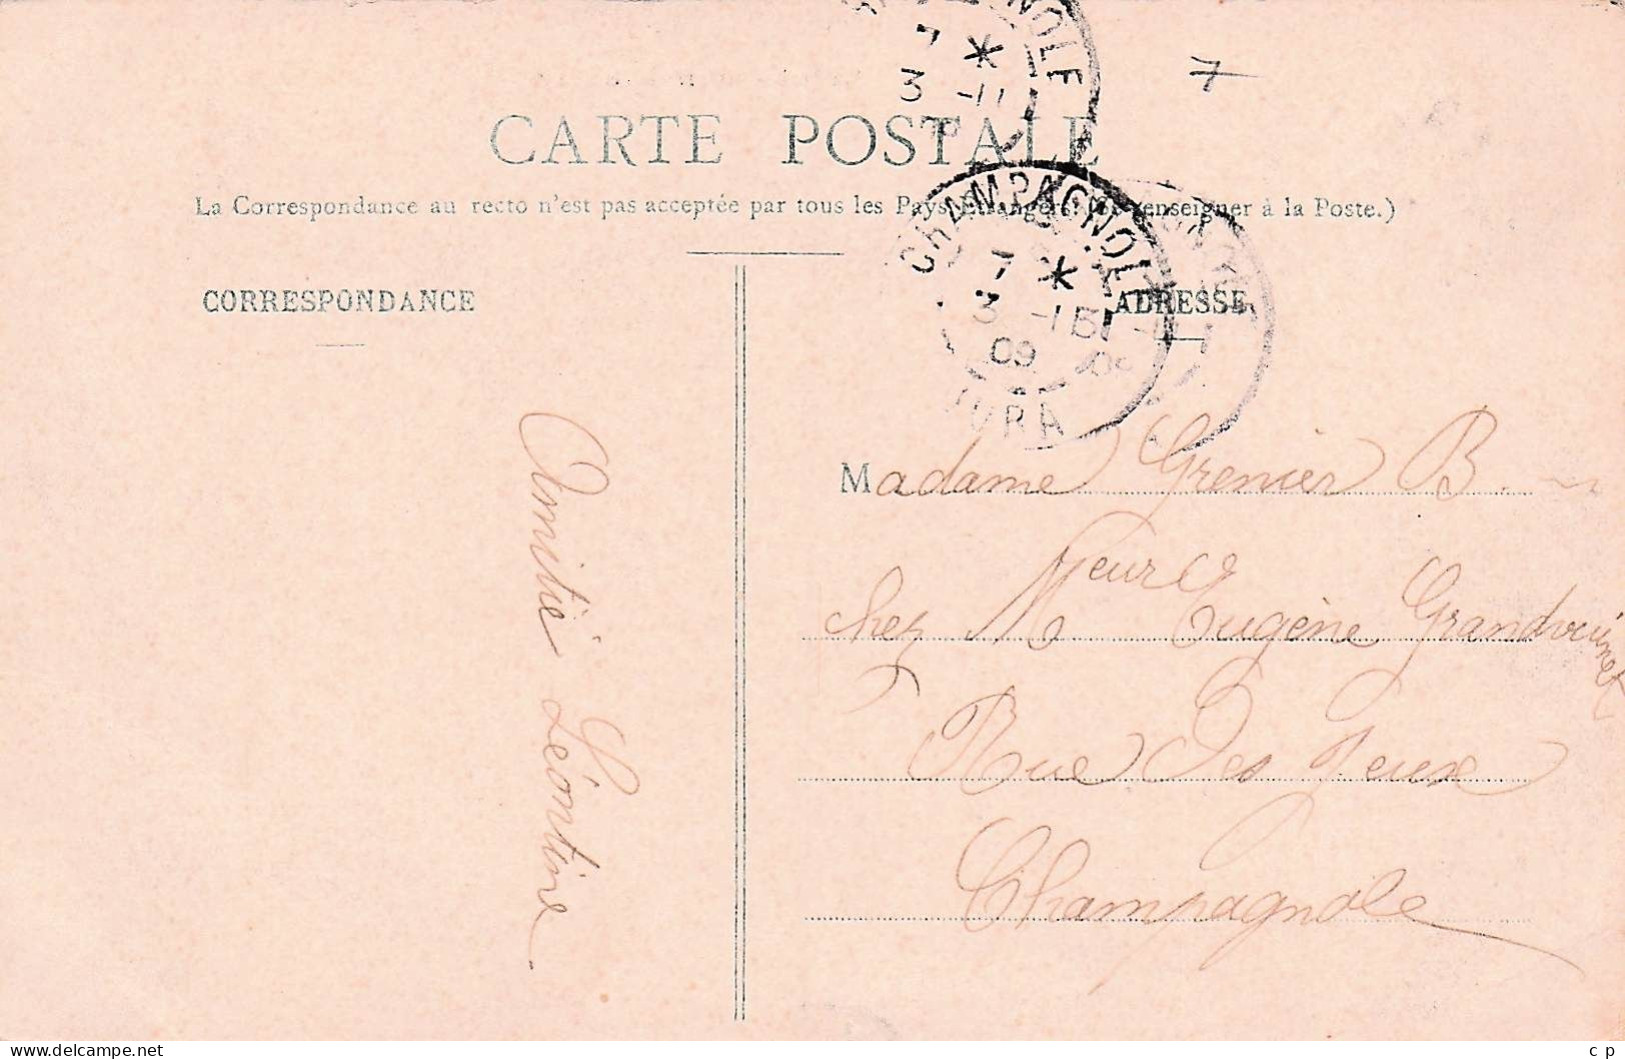 CARTE POSTALE
La Correspondance au recto n'est pas acceptée par tous les Pays Étrangers. (Se renseigner à la Poste.)
CORRESPONDANCE
ADRESSE
CHAMPAGNOLE
7 *
3 -11
09
JURA
7
Madame Grenier B.
chez Mʳ Eugène Grandvuinet
Rue Des
Champagnole
Amitié Léontine
delcampe.net
c p